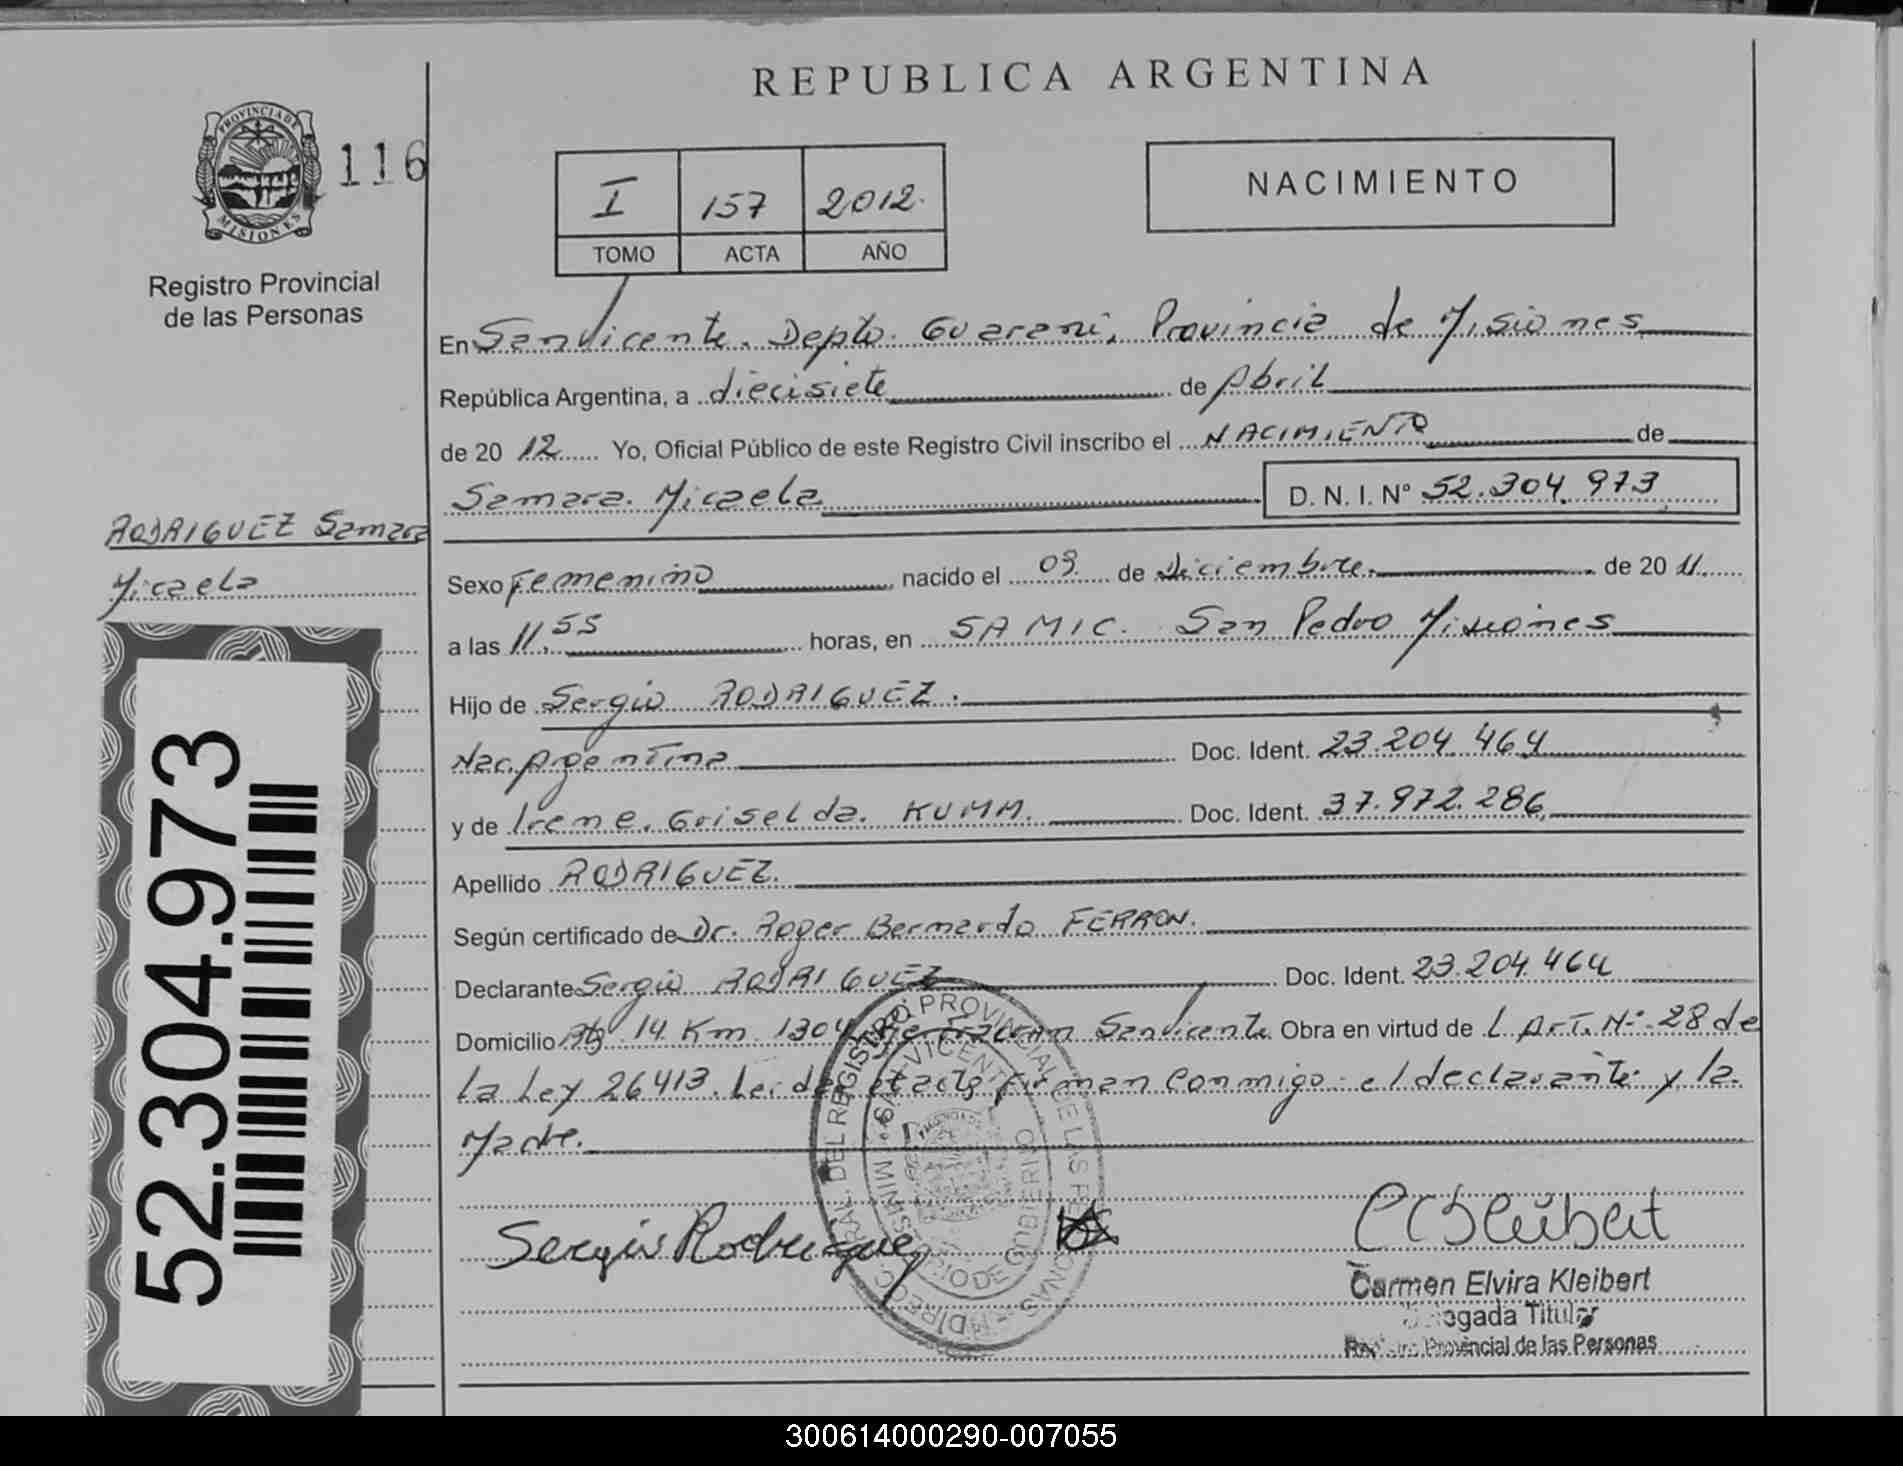 REPUBLICA ARGENTINA
PROVINCIA DE MISIONES
116
Registro Provincial
de las Personas
I 157 2012.
TOMO ACTA AÑO
NACIMIENTO
En San Vicente. Depto. Guarani, Provincia de Misiones
República Argentina, a diecisiete de Abril
de 20 12 Yo, Oficial Público de este Registro Civil inscribo el NACIMIENTO de
Samara Micaela D. N. I. N° 52.304.973
RODRIGUEZ Samara
Micaela
Sexo Femenino nacido el 09 de Diciembre de 20 11
a las 11,55 horas, en SAMIC. San Pedro Misiones
Hijo de Sergio RODRIGUEZ.
Nac. Argentina Doc. Ident. 23.204.464
y de Irene Griselda KUMM. Doc. Ident. 37.972.286
Apellido RODRIGUEZ.
Según certificado de Dr. Roger Bernardo FERRON.
Declarante Sergio RODRIGUEZ Doc. Ident. 23.204.464
Domicilio 14 Km 1304 San Vicente Obra en virtud del Art. N° 28 de
la Ley 26413. Leida el acta firman conmigo el declarante y la
Madre.
52.304.973
DIREC. GRAL. DEL REGISTRO PROVINCIAL DE LAS PERSONAS
SAN VICENTE
MINISTERIO DE GOBIERNO
Sergio Rodriguez
Carmen Elvira Kleibert
Delegada Titular
Registro Provincial de las Personas
300614000290-007055